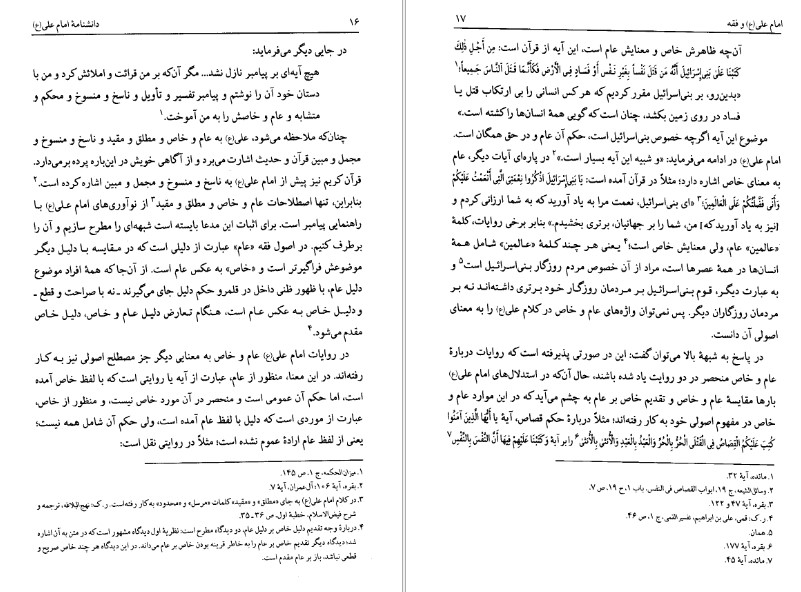 ۱۶
دانشنامهٔ امام علی(ع)
در جایی دیگر می‌فرماید:
هیچ آیه‌ای بر پیامبر نازل نشد... مگر آن‌که بر من قرائت و املائش کرد و من با
دستان خود آن را نوشتم و پیامبر تفسیر و تأویل و ناسخ و منسوخ و محکم و
متشابه و عام و خاصش را به من آموخت.۱
چنان‌که ملاحظه می‌شود، علی(ع) به عام و خاص و مطلق و مقید و ناسخ و منسوخ و
مجمل و مبین قرآن و حدیث اشارت می‌برد و از آگاهی خویش در این‌باره پرده برمی‌دارد.
قرآن کریم نیز پیش از امام علی(ع) به ناسخ و منسوخ و مجمل و مبین اشاره کرده است.۲
بنابراین، تنها اصطلاحات عام و خاص و مطلق و مقید۳ از نوآوری‌های امام علی(ع) با
راهنمایی پیامبر است. برای اثبات این مدعا بایسته است شبهه‌ای را مطرح سازیم و آن را
برطرف کنیم. در اصول فقه «عام» عبارت از دلیلی است که در مقایسه با دلیل دیگر
موضوعش فراگیرتر است و «خاص» به عکس عام است. از آن‌جا که همهٔ افراد موضوع
دلیل عام، با ظهور ظنی داخل در قلمرو حکم دلیل جای می‌گیرند ـ نه با صراحت و قطع ـ
و دلیل خاص به عکس عام است، هنگام تعارض دلیل عام و خاص، دلیل خاص
مقدم می‌شود.۴
در روایات امام علی(ع) عام و خاص به معنایی دیگر جز مصطلح اصولی نیز به کار
رفته‌اند. در این معنا، منظور از عام، عبارت از آیه یا روایتی است که با لفظ خاص آمده
است، اما حکم آن عمومی است و منحصر در آن مورد خاص نیست، و منظور از خاص،
عبارت از موردی است که دلیل با لفظ عام آمده است، ولی حکم آن شامل همه نیست؛
یعنی از لفظ عام ارادهٔ عموم نشده است؛ مثلاً در روایتی نقل است:
۱. میزان‌الحکمه، ج ۱، ص ۱۴۵.
۲. بقره، آیهٔ ۱۰۶؛ آل‌عمران، آیهٔ ۷.
۳. در کلام امام علی(ع) به جای «مطلق» و «مقید» کلمات «مرسل» و «محدود» به کار رفته‌است. ر.ک: نهج‌البلاغه، ترجمه و
شرح فیض‌الاسلام، خطبهٔ اول، ص ۳۶ـ۳۵.
۴. دربارهٔ وجه تقدیم دلیل خاص بر دلیل عام، دو دیدگاه مطرح است: نظریهٔ اول دیدگاه مشهور است که در متن به آن اشاره
شد؛ دیدگاه دیگر تقدیم خاص بر عام را به خاطر قرینه بودن خاص بر عام می‌داند. در این دیدگاه هر چند خاص صریح و
قطعی نباشد، باز بر عام مقدم است.
امام علی(ع) و فقه
۱۷
آن‌چه ظاهرش خاص و معنایش عام است، این آیه از قرآن است: مِن أَجْلِ ذلِكَ
كَتَبْنَا عَلَىٰ بَنِي‌إِسْرَائِيلَ أَنَّهُ مَن قَتَلَ نَفْساً بِغَيْرِ نَفْسٍ أَوْ فَسَادٍ فِي الْأَرْضِ فَكَأَنَّمَا قَتَلَ النَّاسَ جَمِيعاً؛۱
«بدین‌رو، بر بنی‌اسرائیل مقرر کردیم که هر کس انسانی را بی ارتکاب قتل یا
فساد در روی زمین بکشد، چنان است که گویی همهٔ انسان‌ها را کشته است.»
موضوع این آیه اگرچه خصوص بنی‌اسرائیل است، حکم آن عام و در حق همگان است.
امام علی(ع) در ادامه می‌فرماید: «و شبیه این آیه بسیار است.»۲ در پاره‌ای آیات دیگر، عام
به معنای خاص اشاره دارد؛ مثلاً در قرآن آمده است: يَا بَنِي‌إِسْرَائِيلَ اذْكُرُوا نِعْمَتِيَ الَّتِي أَنْعَمْتُ عَلَيْكُمْ
وَأَنِّي فَضَّلْتُكُمْ عَلَى الْعَالَمِينَ؛۳ «ای بنی‌اسرائیل، نعمت مرا به یاد آورید که به شما ارزانی کردم و
[نیز به یاد آورید که] من، شما را بر جهانیان، برتری بخشیدم.» بنابر برخی روایات، کلمهٔ
«عالمین» عام، ولی معنایش خاص است؛۴ یعنی هر چند کلمهٔ «عالمین» شامل همهٔ
انسان‌ها در همهٔ عصرها است، مراد از آن خصوص مردم روزگار بنی‌اسرائیل است۵ و
به عبارت دیگر، قوم بنی‌اسرائیل بر مردمان روزگار خود برتری داشته‌اند نه بر
مردمان روزگاران دیگر. پس نمی‌توان واژه‌های عام و خاص در کلام علی(ع) را به معنای
اصولی آن دانست.
در پاسخ به شبههٔ بالا می‌توان گفت: این در صورتی پذیرفته است که روایات دربارهٔ
عام و خاص منحصر در دو روایت یاد شده باشند، حال آن‌که در استدلال‌های امام علی(ع)
بارها مقایسهٔ عام و خاص و تقدیم خاص بر عام به چشم می‌آید که در این موارد عام و
خاص در مفهوم اصولی خود به کار رفته‌اند؛ مثلاً دربارهٔ حکم قصاص، آیهٔ یَا أَيُّهَا الَّذِينَ آمَنُوا
كُتِبَ عَلَيْكُمُ الْقِصَاصُ فِي الْقَتْلَى الْحُرُّ بِالْحُرِّ وَالْعَبْدُ بِالْعَبْدِ وَالْأُنثىٰ بِالْأُنثىٰ۶ را بر آیهٔ وَكَتَبْنَا عَلَيْهِمْ فِيهَا أَنَّ النَّفْسَ بِالنَّفْسِ۷
۱. مائده، آیهٔ ۳۲.
۲. وسائل‌الشیعه، ج ۱۹، ابواب القصاص فی النفس، باب ۱، ح ۱۹، ص ۷.
۳. بقره، آیهٔ ۴۷ و ۱۲۲.
۴. ر.ک: قمی، علی بن ابراهیم، تفسیر القمی، ج ۱، ص ۴۶.
۵. همان.
۶. بقره، آیهٔ ۱۷۷.
۷. مائده، آیهٔ ۴۵.